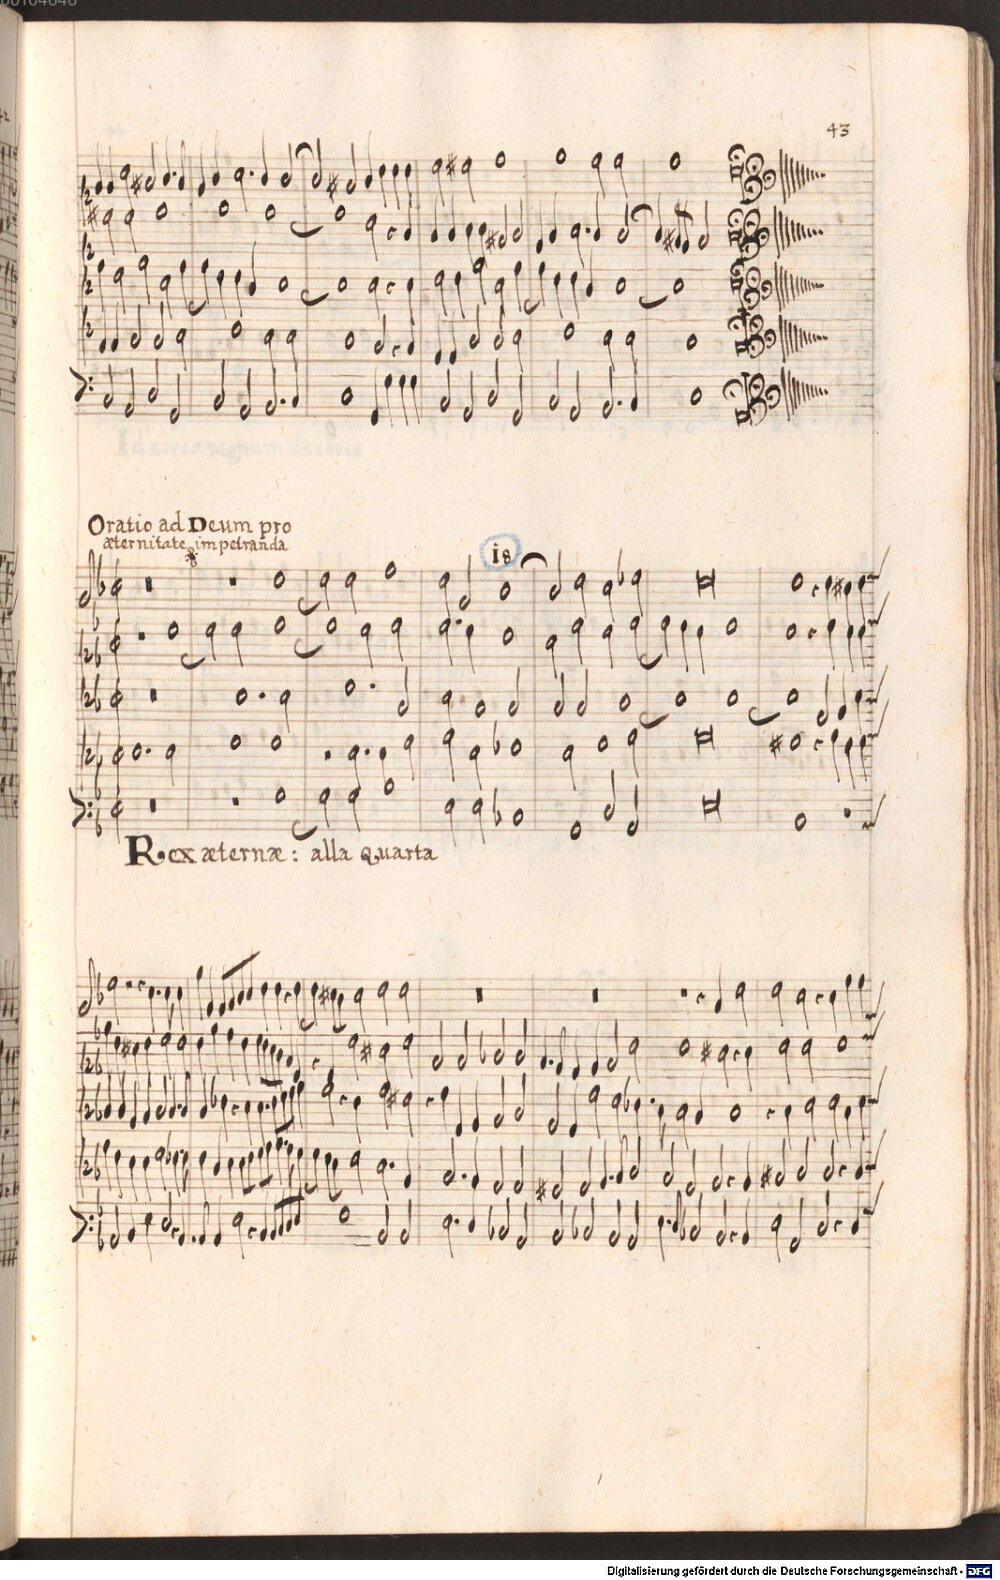 00104648
43
Oratio ad Deum pro
æternitate impetranda
i8
Rex æternæ: alla quarta
Digitalisierung gefördert durch die Deutsche Forschungsgemeinschaft - DFG